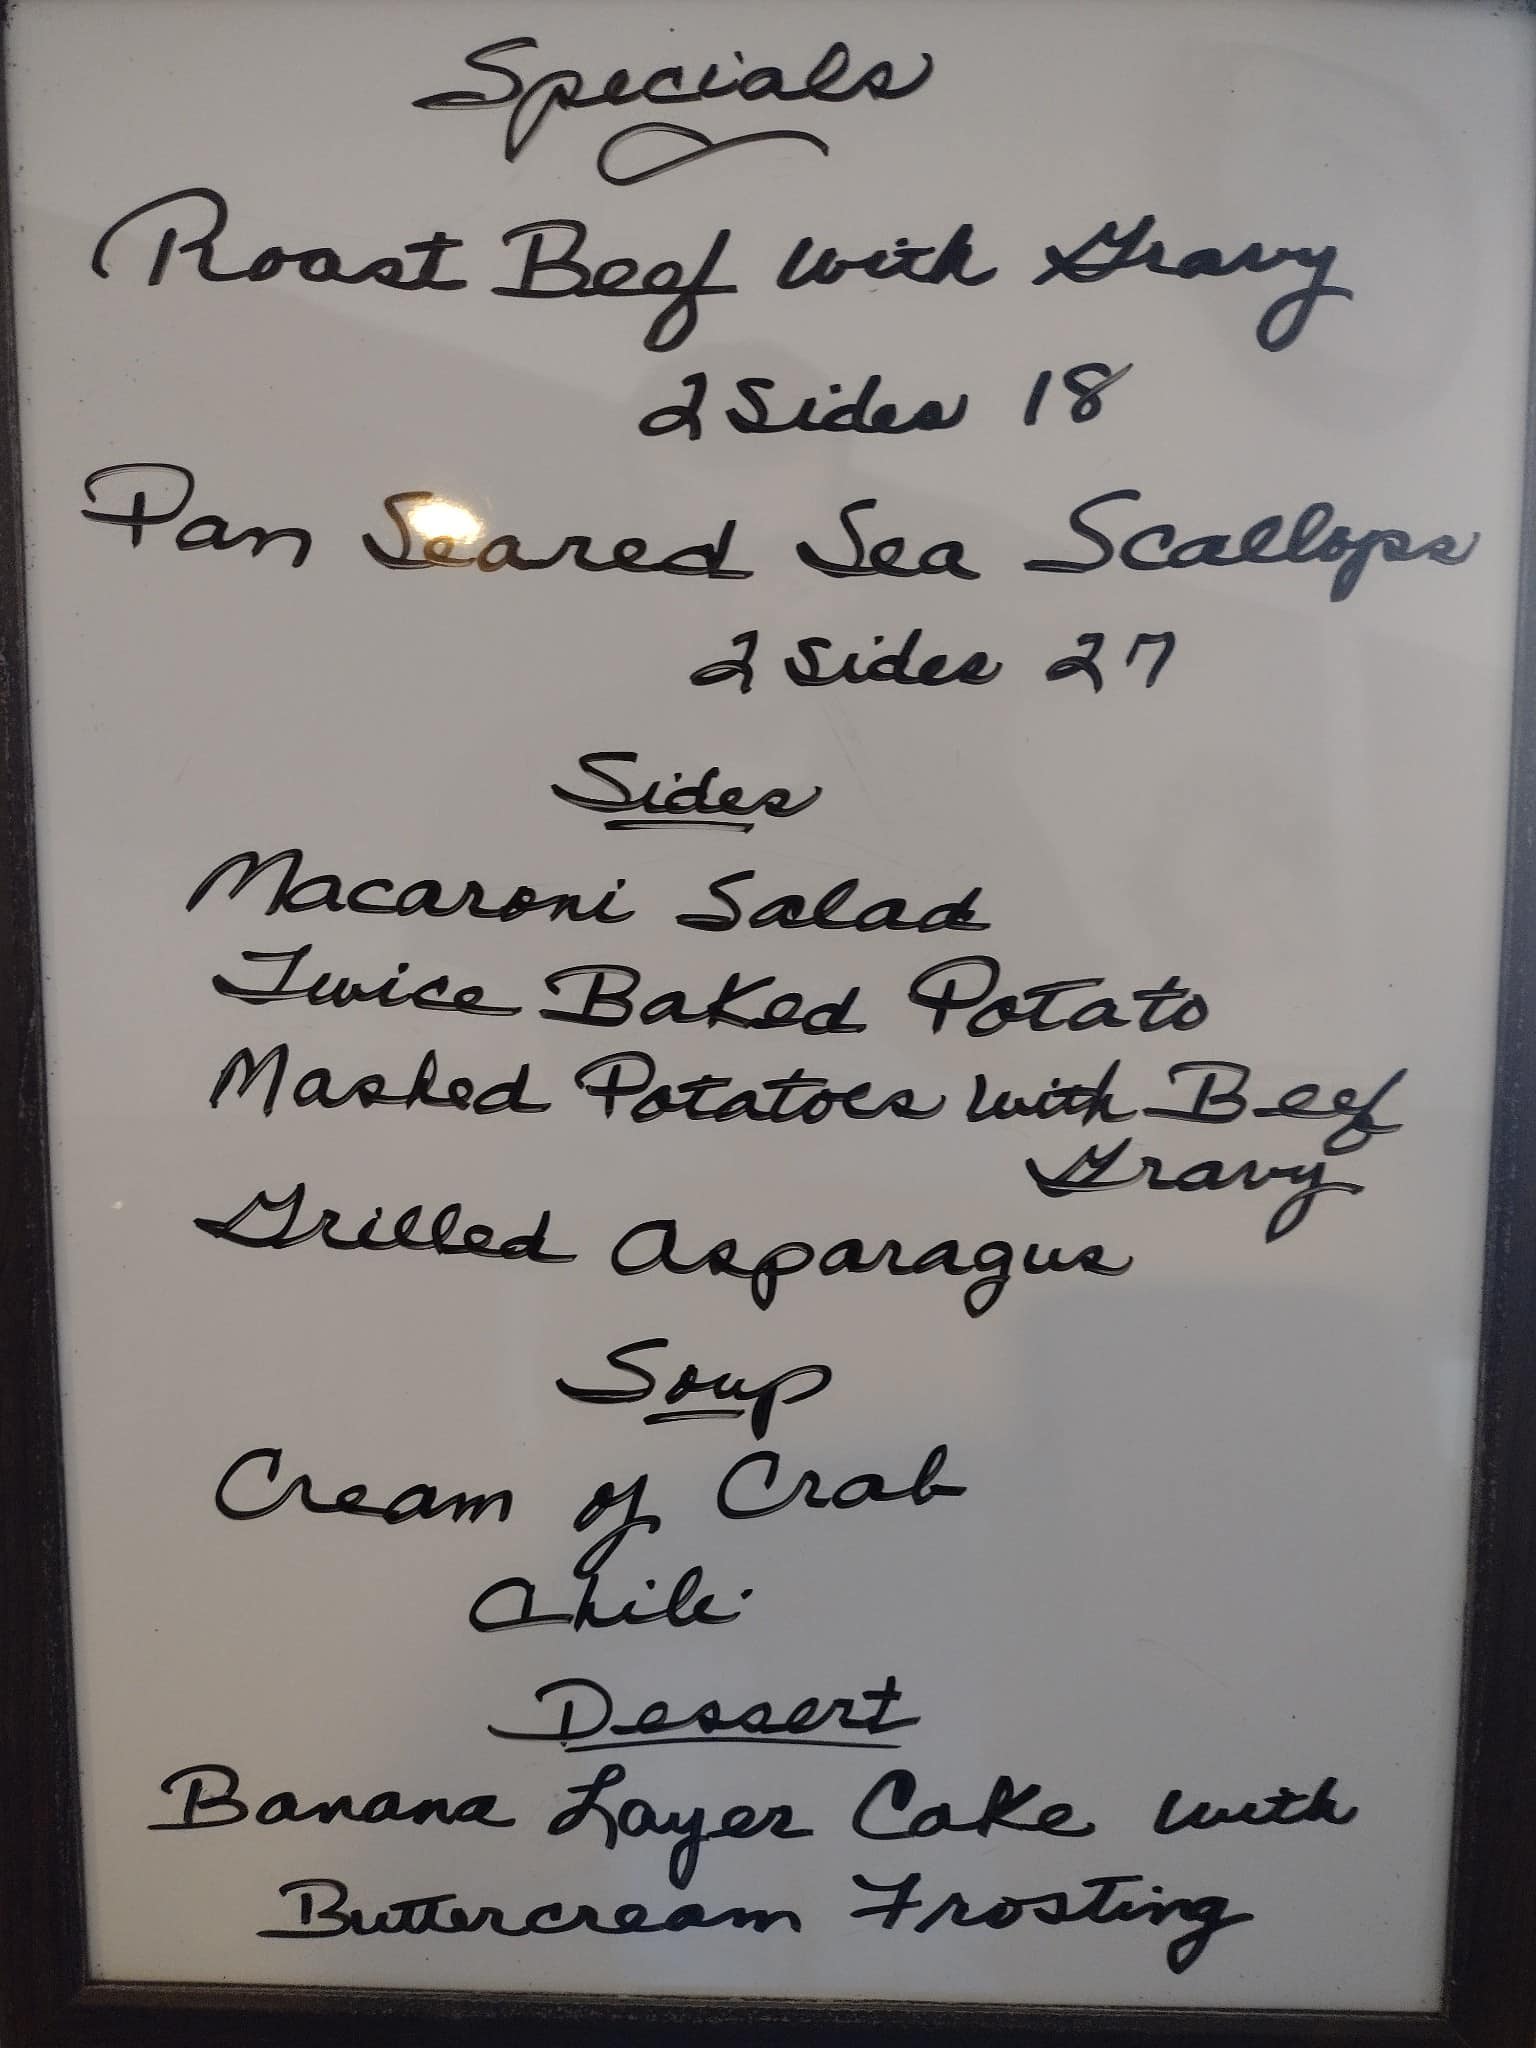 Specials
Roast Beef with Gravy
2 Sides 18
Pan Seared Sea Scallops
2 Sides 27
Sides
Macaroni Salad
Twice Baked Potato
Mashed Potatoes with Beef
Gravy
Grilled Asparagus
Soup
Cream of Crab
Chili
Dessert
Banana Layer Cake with
Buttercream Frosting